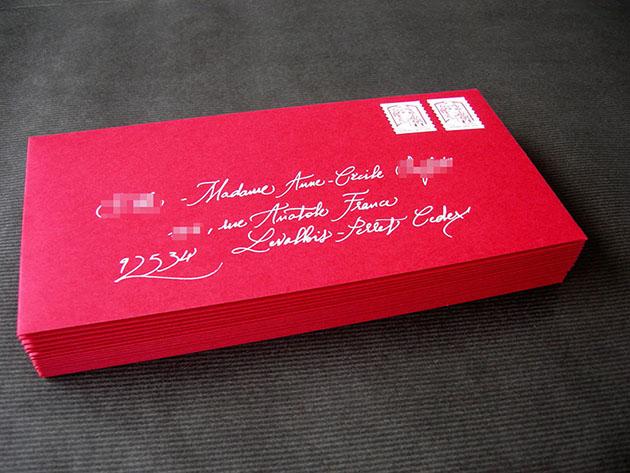 - Madame Anne-Cécile
, rue Anatole France
92534 Levallois-Perret Cedex